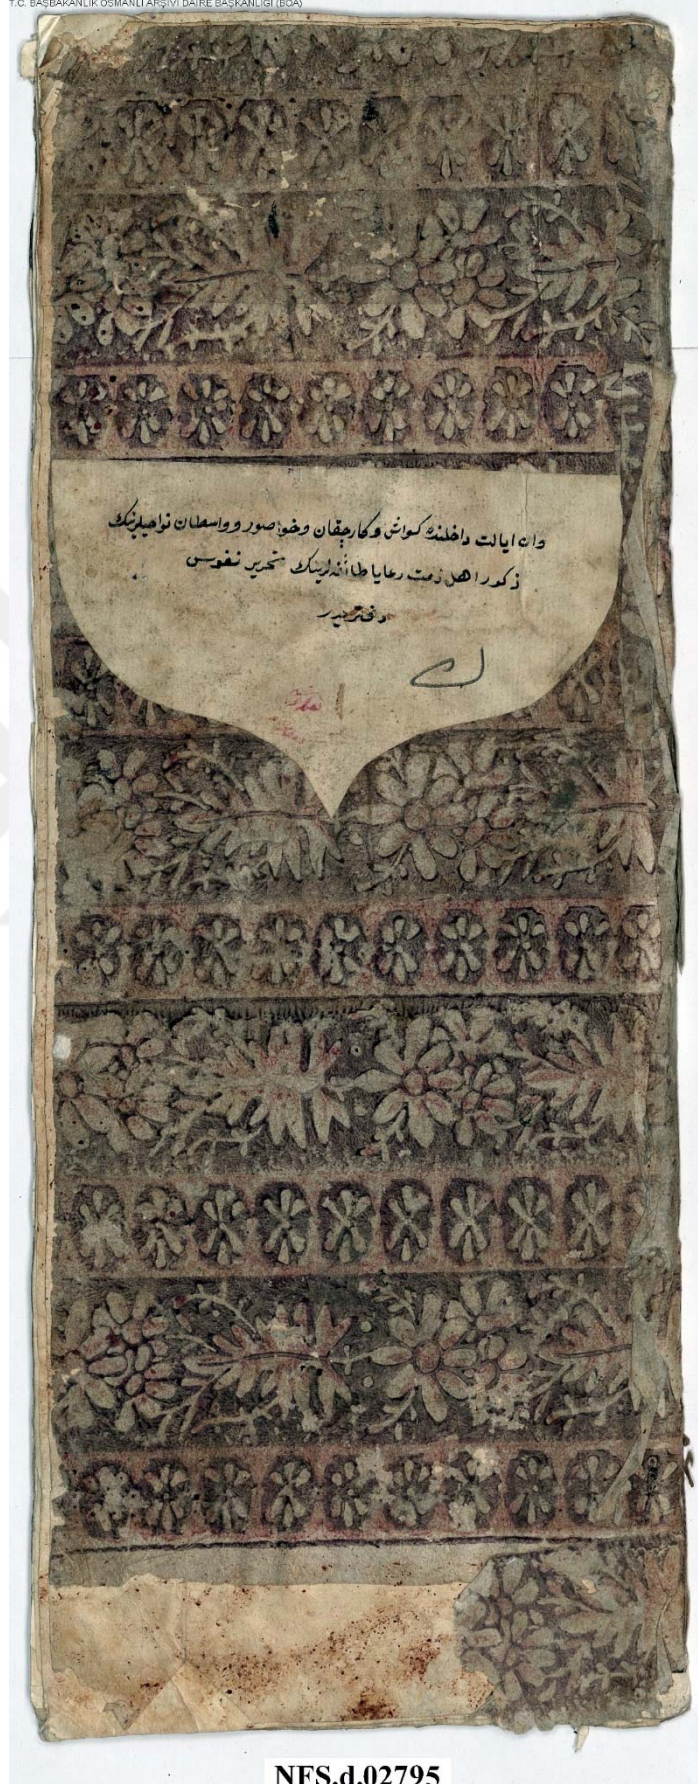 T.C. BAŞBAKANLIK OSMANLI ARŞİVİ DAİRE BAŞKANLIĞI (BOA)
وان ايالت داخلنده كواش و كارچقان و خواصور و واسطان نواحيلرينك
ذكور اهل ذمت رعايا طائفه لرينك تحرير نفوس
دفتريدر
NFS.d.02795